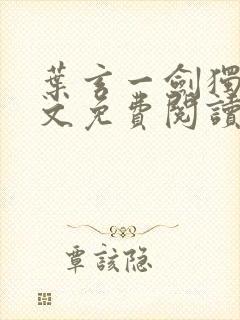 葉玄一劍獨
文免費閱讀
覃該隐